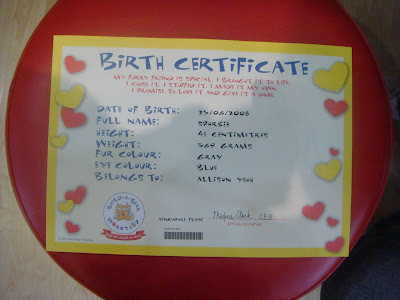 BIRTH CERTIFICATE
MY FURRY FRIEND IS SPECIAL. I BROUGHT IT TO LIFE
I CHOSE IT. I STUFFED IT. I MADE IT MY OWN
I PROMISE TO LOVE IT AND GIVE IT A HOME
DATE OF BIRTH: 25/06/2008
FULL NAME:
HEIGHT: 41 CENTIMETRES
WEIGHT: 369 GRAMS
FUR COLOUR: GRAY
EYE COLOUR: BLUE
BELONGS TO: ALLISON
BUILD-A-BEAR
WORKSHOP
Maxine Clark, CEB
OFFICIAL SIGNATURE